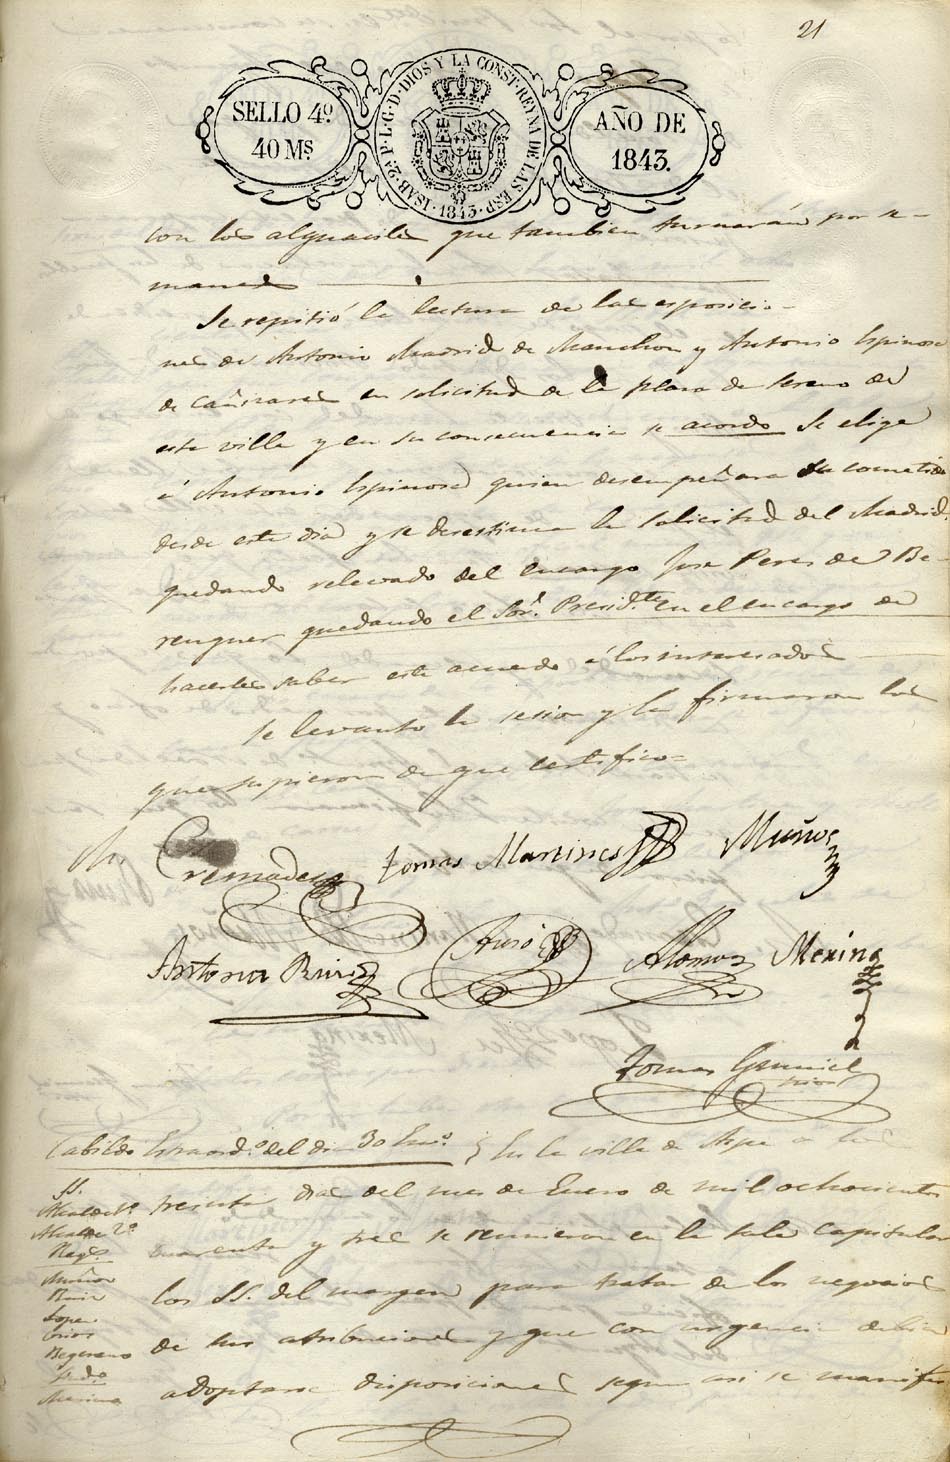 21
SELLO 4º
40 Ms.
ISAB. 2ª P. L. G. D. DIOS Y LA CONST. REYNA DE LAS ESP. 1843.
AÑO DE
1843.
con los alguaciles que tambien turnarán por se-
manas
Se repitió la lectura de las esposicio-
nes de Antonio Madrid de Manchon y Antonio Espinosa
de Cañizares en solicitud de la plaza de sereno de
esta villa y en su consecuencia se acordo Se elige
á Antonio Espinosa quien desempeñara su cometido
desde este dia y se desestima la solicitud del Madrid,
quedando relevado del encargo Jose Peres de Be-
renguer quedando el Sor. Presid.te en el encargo de
hacerles saber este acuerdo á los interesados
se levanto la sesion y la firmaron los
que supieron de que certifico=
Cremades Tomas Martines Muños
Antonio Ruiz Asró Alonso Mexina
Tomas
Cabildo Estraord.o del dia 30 En.o En la villa de Aspe a los
SS.
Alcalde 1º treinta dias del mes de Enero de mil ochocientos
Alcalde 2º
Reg.s cuarenta y tres se reunieron en la sala capitular
Muñoz
Ruiz los SS. del margen para tratar de los negocios
Lopez
de sus atribuciones y que con urgencia debian
adoptarse disposiciones segun asi se manifes
Mexina